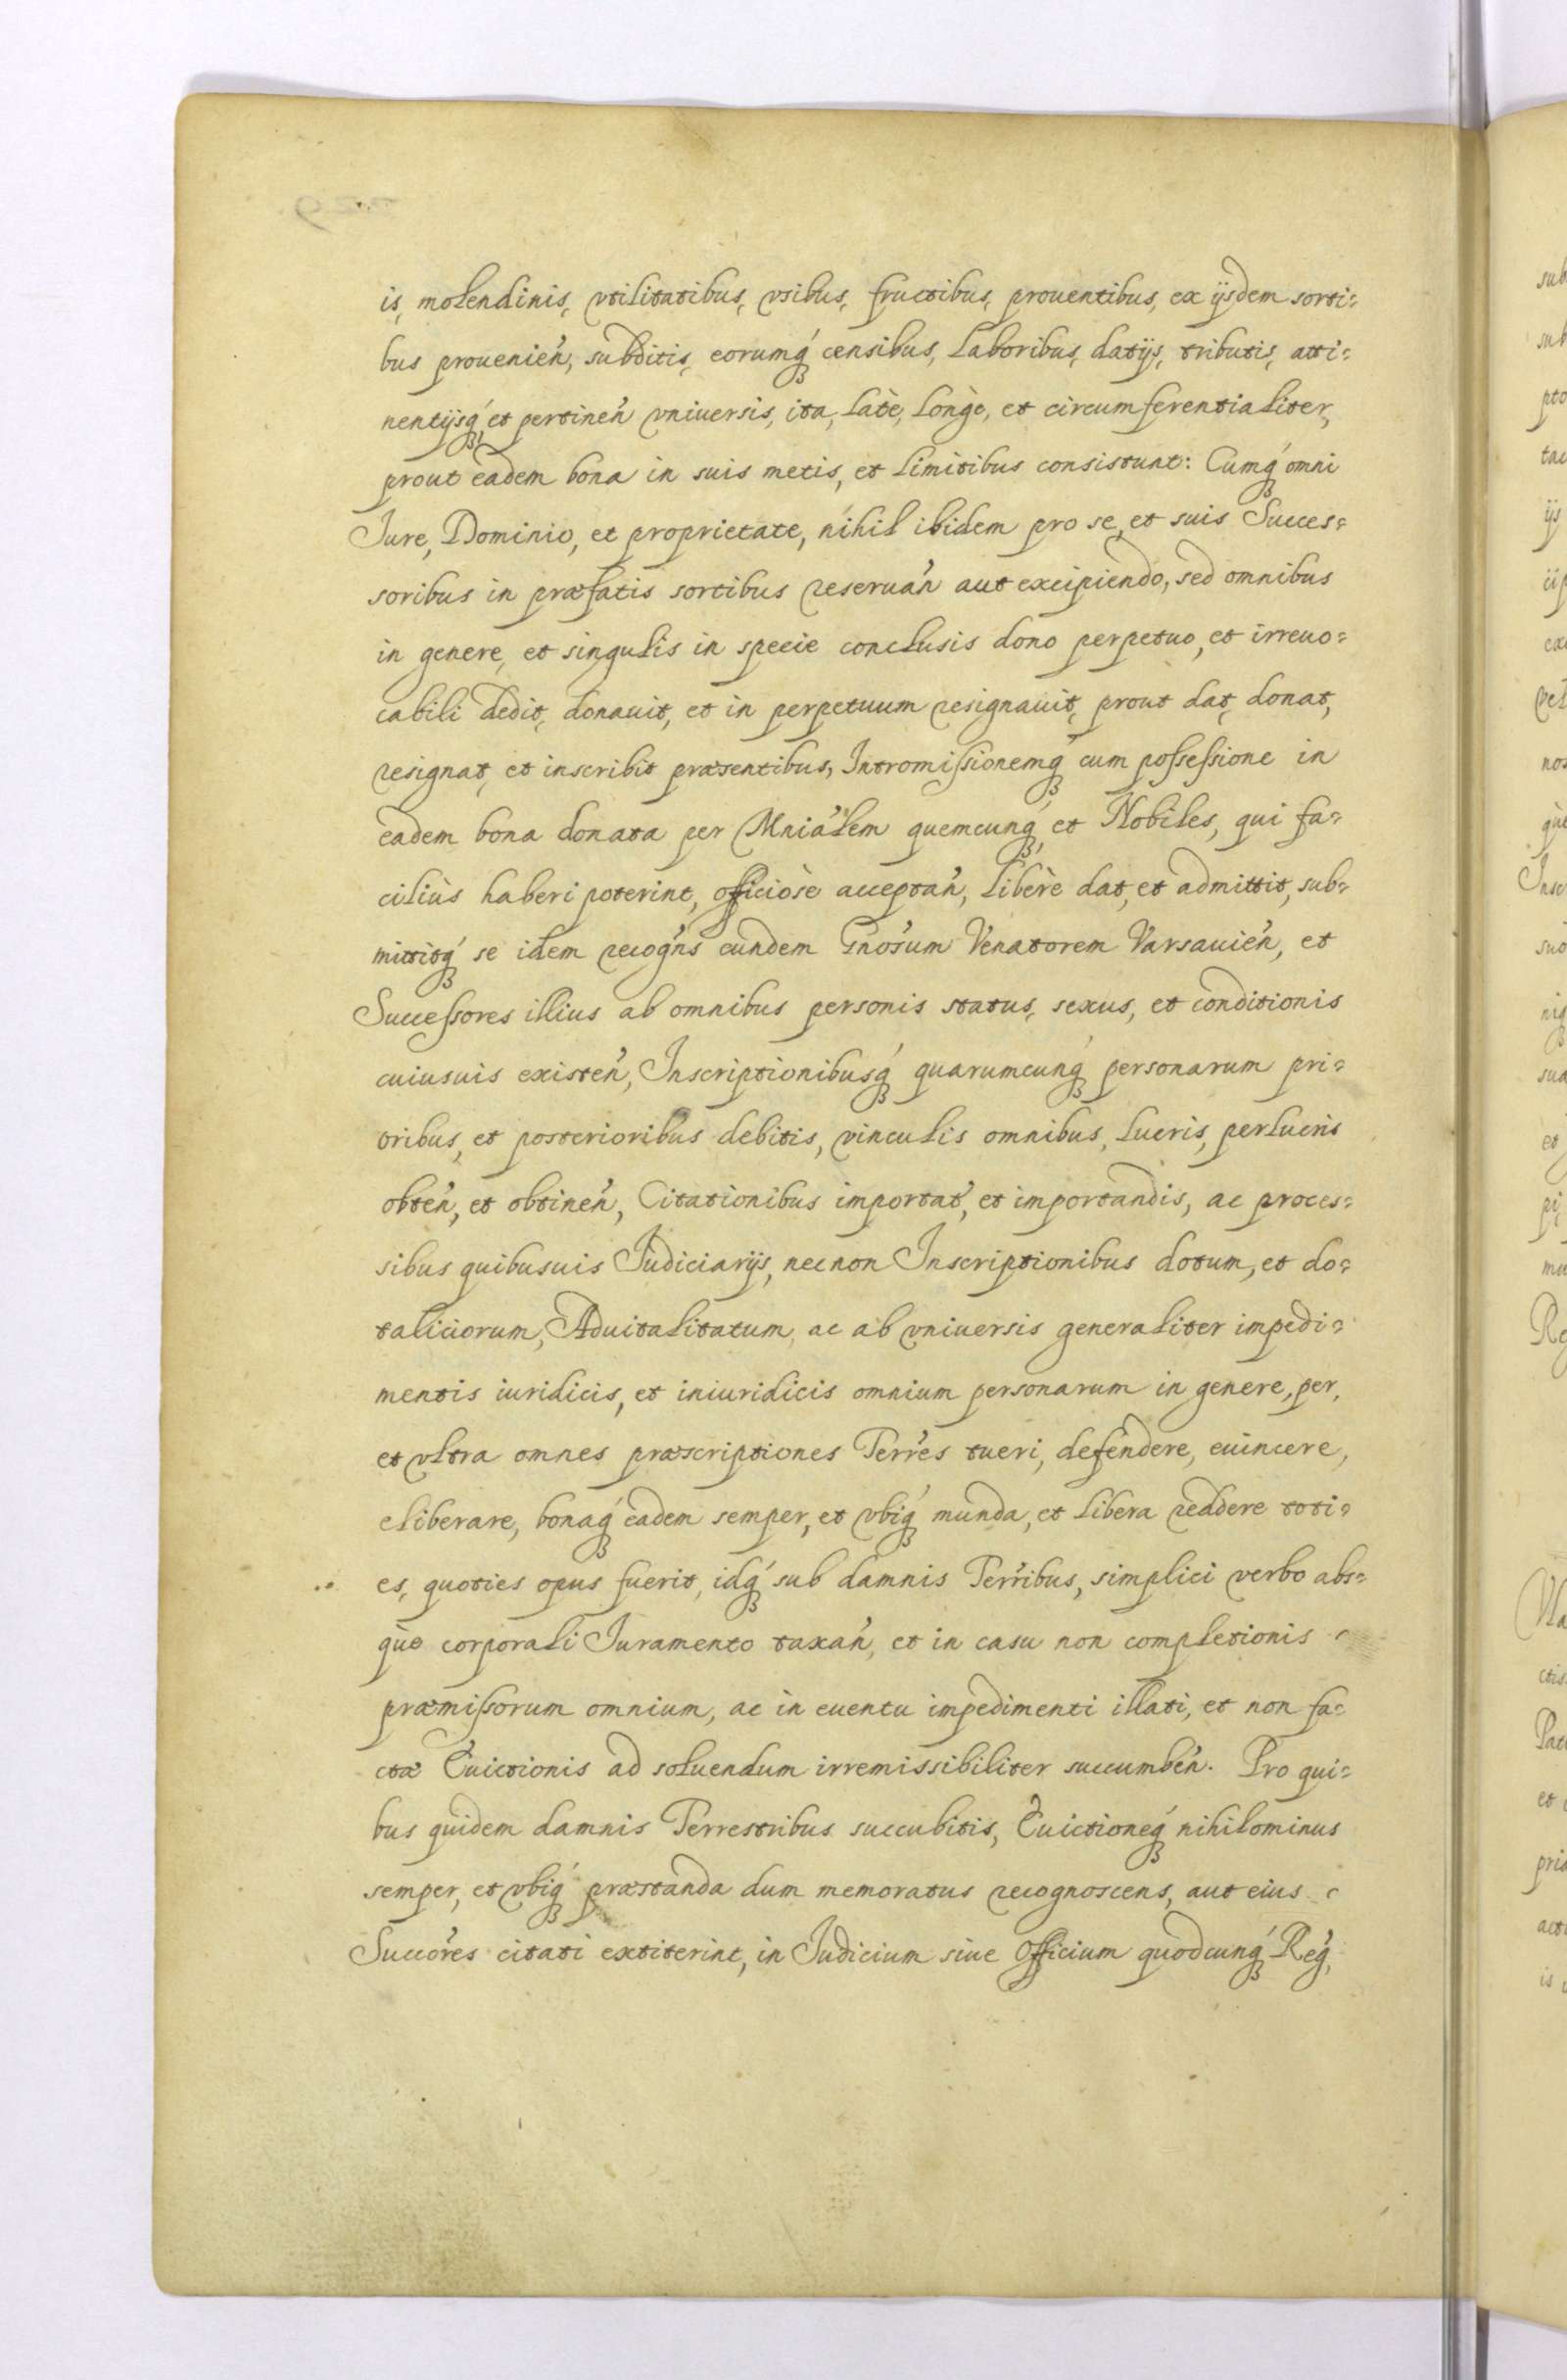 is, molendinis, vtilitatibus, vsibus, fructibus, prouentibus, ex ijsdem sorti=
bus prouenień, subditis, eorumq́ȝ censibus, laboribus, datijs, tributis, atti=
nentijsq́ȝ, et pertineń vniuersis, ita, latè, longè, et circumferentialiter,
prout eadem bona in suis metis, et limitibus consistunt: Cumq́ȝ omni
Iure, Dominio, et proprietate, nihil ibidem pro se, et suis Succes=
soribus in præfatis sortibus reseruań aut excipiendo, sed omnibus
in genere, et singulis in specie conclusis dono perpetuo, et irreuo=
cabili dedit, donauit, et in perpetuum resignauit, prout dat, donat,
resignat, et inscribit præsentibus, Intromißionemq́ȝ cum poßeßione in
eadem bona donata per Mniálem quemcunq́ȝ, et Nobiles, qui fa=
ciliùs haberi poterint, officiòse acceptań, liberè dat, et admittit, sub=
mittitq́ȝ se idem recogńs eundem Gnósum Venatorem Varsauień, et
Succeßores illius ab omnibus personis status, sexus, et conditionis
cuiusuis existeń, Inscriptionibusq́ȝ quarumcunq́ȝ personarum pri=
oribus, et posterioribus debitis, vinculis omnibus, lucris, perlucris
obteń, et obtineń, Citationibus importat́, et importandis, ac proces=
sibus quibusuis Iudiciarijs, necnon Inscriptionibus dotum, et do=
taliciorum, Aduitalitatum, ac ab vniuersis generaliter impedi=
mentis iuridicis, et iniuridicis omnium personarum in genere, per,
et vltra omnes præscriptiones Terŕes tueri, defendere, euincere,
eliberare, bonaq́ȝ eadem semper, et vbiq́ȝ munda, et libera reddere toti=
es, quoties opus fuerit, idq́ȝ sub damnis Terŕibus, simplici verbo abs=
què corporali Iuramento taxań, et in casu non completionis
præmißorum omnium, ac in euentu impedimenti illati, et non fa=
ctæ Euictionis ad soluendum irremissibiliter succumbeń. Pro qui=
bus quidem damnis Terrestribus succubitis, Euictioneq́ȝ nihilominus
semper, et vbiq́ȝ præstanda dum memoratus recognoscens, aut eius
Succóres citati extiterint, in Iudicium siue Officium quodcunq́ȝ Reǵ,